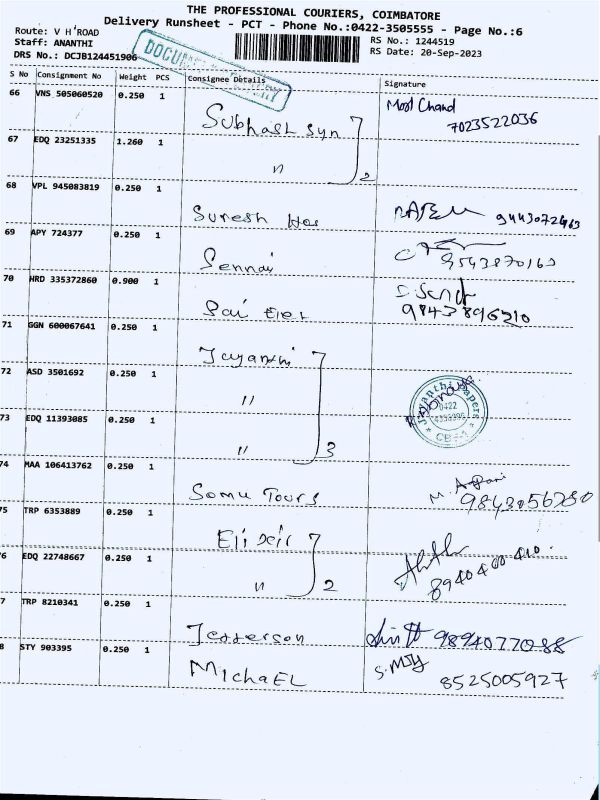 THE PROFESSIONAL COURIERS, COIMBATORE
Delivery Runsheet - PCT - Phone No.:0422-3505555 - Page No.:6
Route: V H ROAD
Staff: ANANTHI
DRS No.: DCJB124451906
RS No.: 1244519
RS Date: 20-Sep-2023
S No Consignment No Weight PCS Consignee Details Signature
66 VNS 505060520 0.250 1 Subhash Syn Mool Chand
7023522036
67 EDQ 23251335 1.260 1 " 2
68 VPL 945083819 0.250 1 Suresh
69 APY 724377 0.250 1 Sennai 9543870163
70 HRD 335372860 0.900 1 Sai
9843896210
71 GGN 600067641 0.250 1 Jayanthi
72 ASD 3501692 0.250 1 "
Jayanthi Papers
0422
73 EDQ 11393085 0.250 1 " 3
74 MAA 106413762 0.250 1 Somu Tours
75 TRP 6353889 0.250 1 Elixir
6 EDQ 22748667 0.250 1 " 2
8940400410
7 TRP 8210341 0.250 1 Jefferson 9894077088
8 STY 903395 0.250 1 MichaEL
8525005927